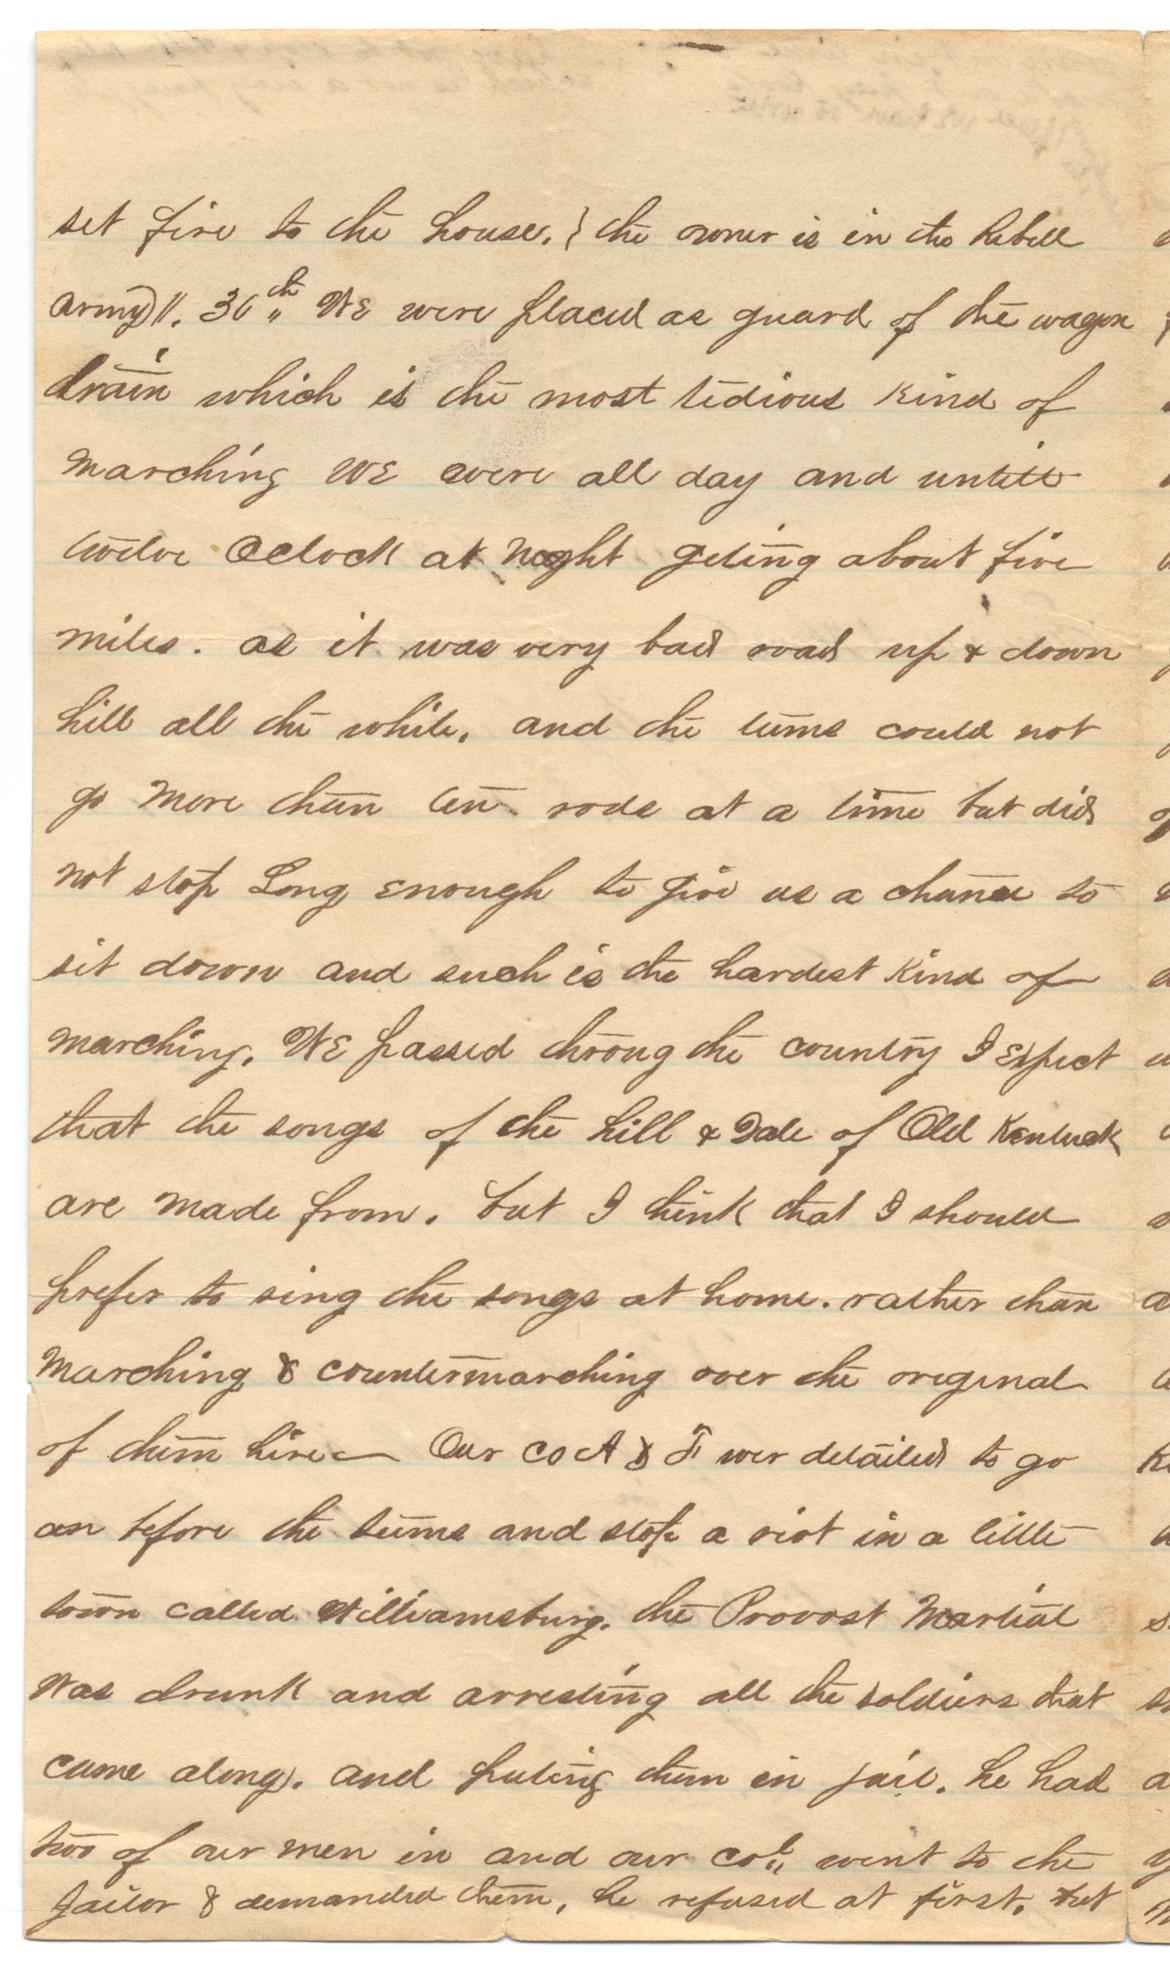 set fire to the house. } the owner is in the Rebell
army)". 30th We were placed as guard of the wagon
train which is the most tedious kind of
marching We were all day and untill
twelve Oclock at Night geting about five
miles. as it was very bad road up & down
hill all the while, and the teims could not
go more than ten rods at a time but did
not stop Long enough to give us a chance to
sit down and such is the hardest kind of
marching. We passed throug the country I Expect
that the songs of the hill & Dale of Old Kentuck
are made from. but I think that I should
prefer to sing the songs at home. rather than
marching & countermarching over the original
of them here Our co A & F wer detailed to go
on before the teims and stop a riot in a little
town called Williamsburg. the Provost Martial
was drunk and arresting all the soldiers that
came along. and puting them in jail. he had
two of our men in and our col. went to the
Jailor & demanded them, he refused at first. but